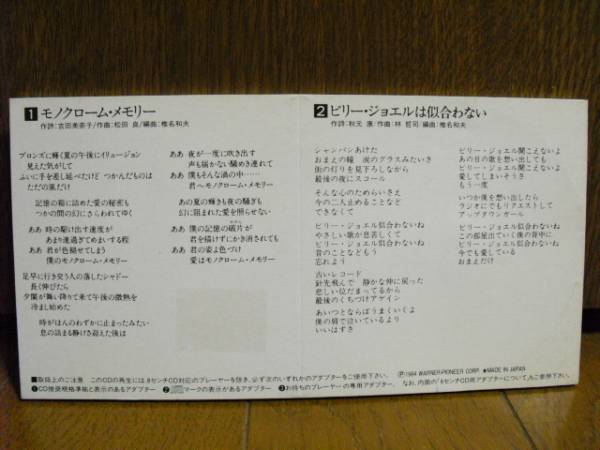 1 モノクローム・メモリー
作詩:吉田美奈子/作曲:松田 良/編曲:椎名和夫
ブロンズに輝く夏の午後にイリュージョン
見えた気がして
ふいに手を差し延べたけど つかんだものは
ただの風だけ
記憶の箱に詰めた愛の秘密も
つかの間の幻にさらわれてゆく
ああ 時の駆け出す速度が
あまり速過ぎてめまいする程
ああ 君が色褪せてしまう
僕のモノクローム・メモリー
足早に行き交う人の落したシャドー
長く伸びたら
夕闇が舞い降りて来て午後の微熱を
冷まし始めた
時がほんのわずかに止まったみたい
息の詰まる静けさ迎えた後は
ああ 夜が一度に吹き出す
声も届かない騒めき連れて
ああ 僕もそんな渦の中……
君へモノクローム・メモリー
あの夏の輝きも夜の騒ぎも
幻に阻まれた愛を照らせない
ああ 僕の記憶の破片が
君を描けずにかき消されても
ああ 君の姿色づけ
愛はモノクローム・メモリー
2 ビリー・ジョエルは似合わない
作詩:秋元 康/作曲:林 哲司 編曲:椎名和夫
シャンパンあけた
おまえの瞳 涙のグラスみたいさ
街の灯りを見下ろしながら
最後の夜にスコール
そんな心のためらいさえ
今の二人止めることなど
できなくて
ビリー・ジョエル似合わないね
やさしい歌が息苦しくて
ビリー・ジョエル似合わないね
昔のことなどもう
忘れよう
古いレコード
針先飛んで 静かな仲に戻った
悲しい位だまってるから
最後のくちづけアゲイン
あいつとならばうまくいくよ
僕の肩で泣いているより
いいはずさ
ビリー・ジョエル聞こえないよ
あの日の歌を想い出しても
ビリー・ジョエル聞こえないよ
愛してしまいそうさ
もう一度
いつか僕を想い出したら
ラジオにでもリクエストして
アップタウンガール
ビリー・ジョエル似合わないね
この部屋出ていく僕の背中に
ビリー・ジョエル似合わないね
今でも愛している
おまえだけ
Ⓟ1984 WARNER-PIONEER CORP. ★MADE IN JAPAN
■取扱上のご注意 このCDの再生には、8センチCD対応のプレーヤーを除き、必ず次のいずれかのアダプターをご使用下さい。
❶CD技奨規格準拠と表示のあるアダプター ❷マークの表示があるアダプター ❸お持ちのプレーヤーの専用アダプター なお、内面の「8センチCD用アダプターについて」もご参照下さい。